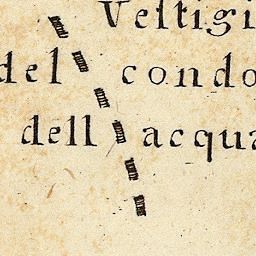 Veſtigi
del condo
dell acqua